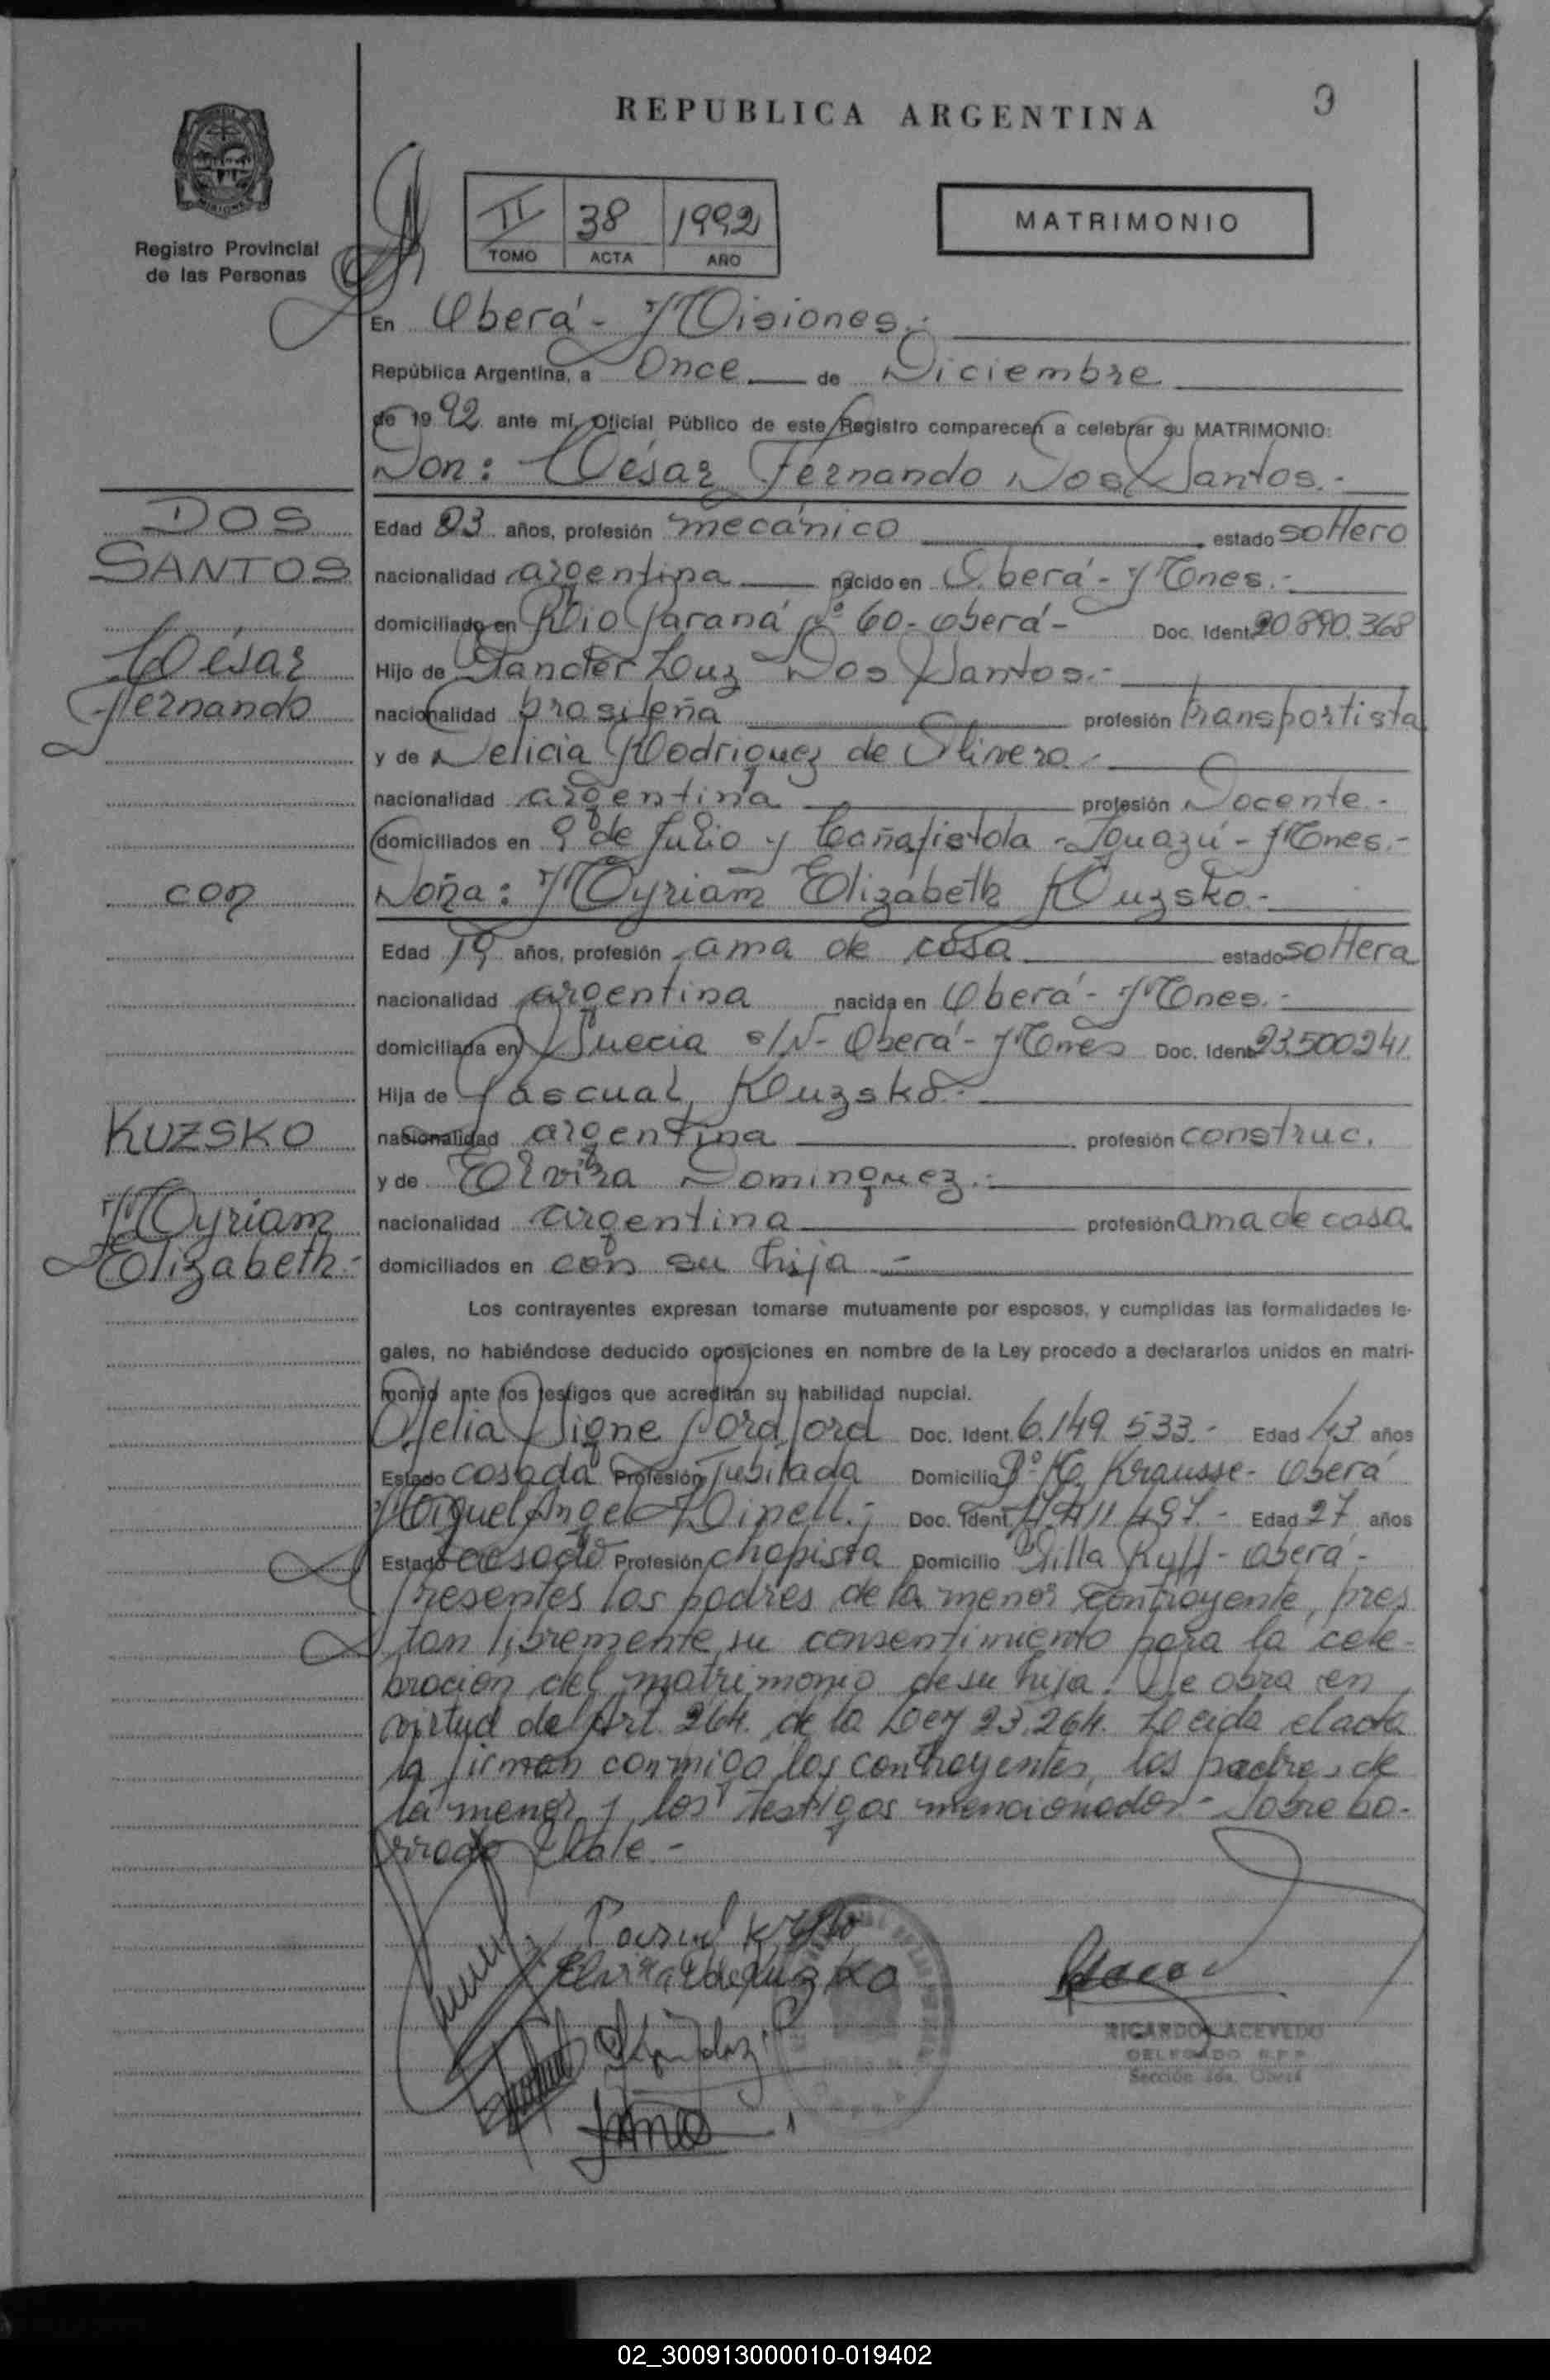 REPUBLICA ARGENTINA
9
Registro Provincial
de las Personas
II 38 1992
TOMO ACTA AÑO
MATRIMONIO
En Oberá - Misiones.-
República Argentina, a Once de Diciembre
de 1992 ante mí, Oficial Público de este Registro comparecen a celebrar su MATRIMONIO:
Don: César Fernando Dos Santos.-
DOS
SANTOS
César
Fernando
Edad 23 años, profesión mecánico estado soltero
nacionalidad argentina nacido en Oberá - Mnes.-
domiciliado en Río Paraná Nº 60 - Oberá - Doc. Ident. 20.890.368
Hijo de Luz Dos Santos.-
nacionalidad brasileña profesión transportista
y de Delicia Rodriguez de Olivera.-
nacionalidad argentina profesión Docente.-
domiciliados en 9 de Julio y Cañafistola - Iguazú - Mnes.-
con
Doña: Myriam Elizabeth Kuzsko.-
Edad 19 años, profesión ama de casa estado soltera
nacionalidad argentina nacida en Oberá - Mnes.-
domiciliada en Suecia s/N - Oberá - Mnes Doc. Ident. 23.500241.
Hija de Pascual Kuzsko.-
KUZSKO
Myriam
Elizabeth.-
nacionalidad argentina profesión construc.
y de Elvira Dominguez.-
nacionalidad argentina profesión ama de casa
domiciliados en con su hija -
Los contrayentes expresan tomarse mutuamente por esposos, y cumplidas las formalidades le-
gales, no habiéndose deducido oposiciones en nombre de la Ley procedo a declararlos unidos en matri-
monio ante los testigos que acreditan su habilidad nupcial.
Ofelia Signe Doc. Ident. 6.149.533.- Edad años
Estado casada Profesión Jubilada Domicilio Krausse - Oberá
Miguel Angel Doc. Ident. Edad 27 años
Estado casado Profesión chapista Domicilio Villa Ruff - Oberá -
Presentes los padres de la menor contrayente, pres
tan libremente su consentimiento para la cele-
bracion del matrimonio de su hija. Se obra en
virtud del Art. 264. de la Ley 23.264. Leída el acta
la firman conmigo los contrayentes, los padres de
la menor y los testigos mencionados.- Sobre bo-
rrado: Vale -
RICARDO ACEVEDO
DELEGADO R.P.P.
Sección 2da. Oberá
02_300913000010-019402